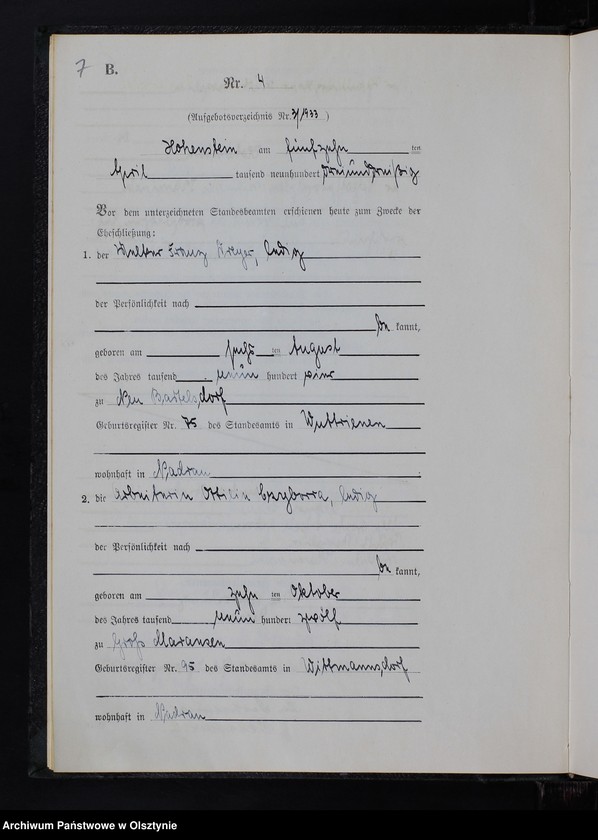 7 B.
Nr. 4
(Aufgebotsverzeichnis Nr. 3/1933)
Hohenstein am fünfzehn ten
April tausend neunhundert dreiunddreißig
Vor dem unterzeichneten Standesbeamten erschienen heute zum Zwecke der
Eheschließung:
1. der Walter Franz Kreyer, ledig
der Persönlichkeit nach
be kannt,
geboren am sechs ten August
des Jahres tausend neun hundert eins
zu Neu Bartelsdorf
Geburtsregister Nr. 75 des Standesamts in Wuttrienen
wohnhaft in Nadrau
2. die Arbeiterin Ottilie Czyborra, ledig
der Persönlichkeit nach
be kannt,
geboren am zehn ten Oktober
des Jahres tausend neun hundert zwölf
zu Groß Maransen
Geburtsregister Nr. 95 des Standesamts in Wittmannsdorf
wohnhaft in Nadrau
Archiwum Państwowe w Olsztynie